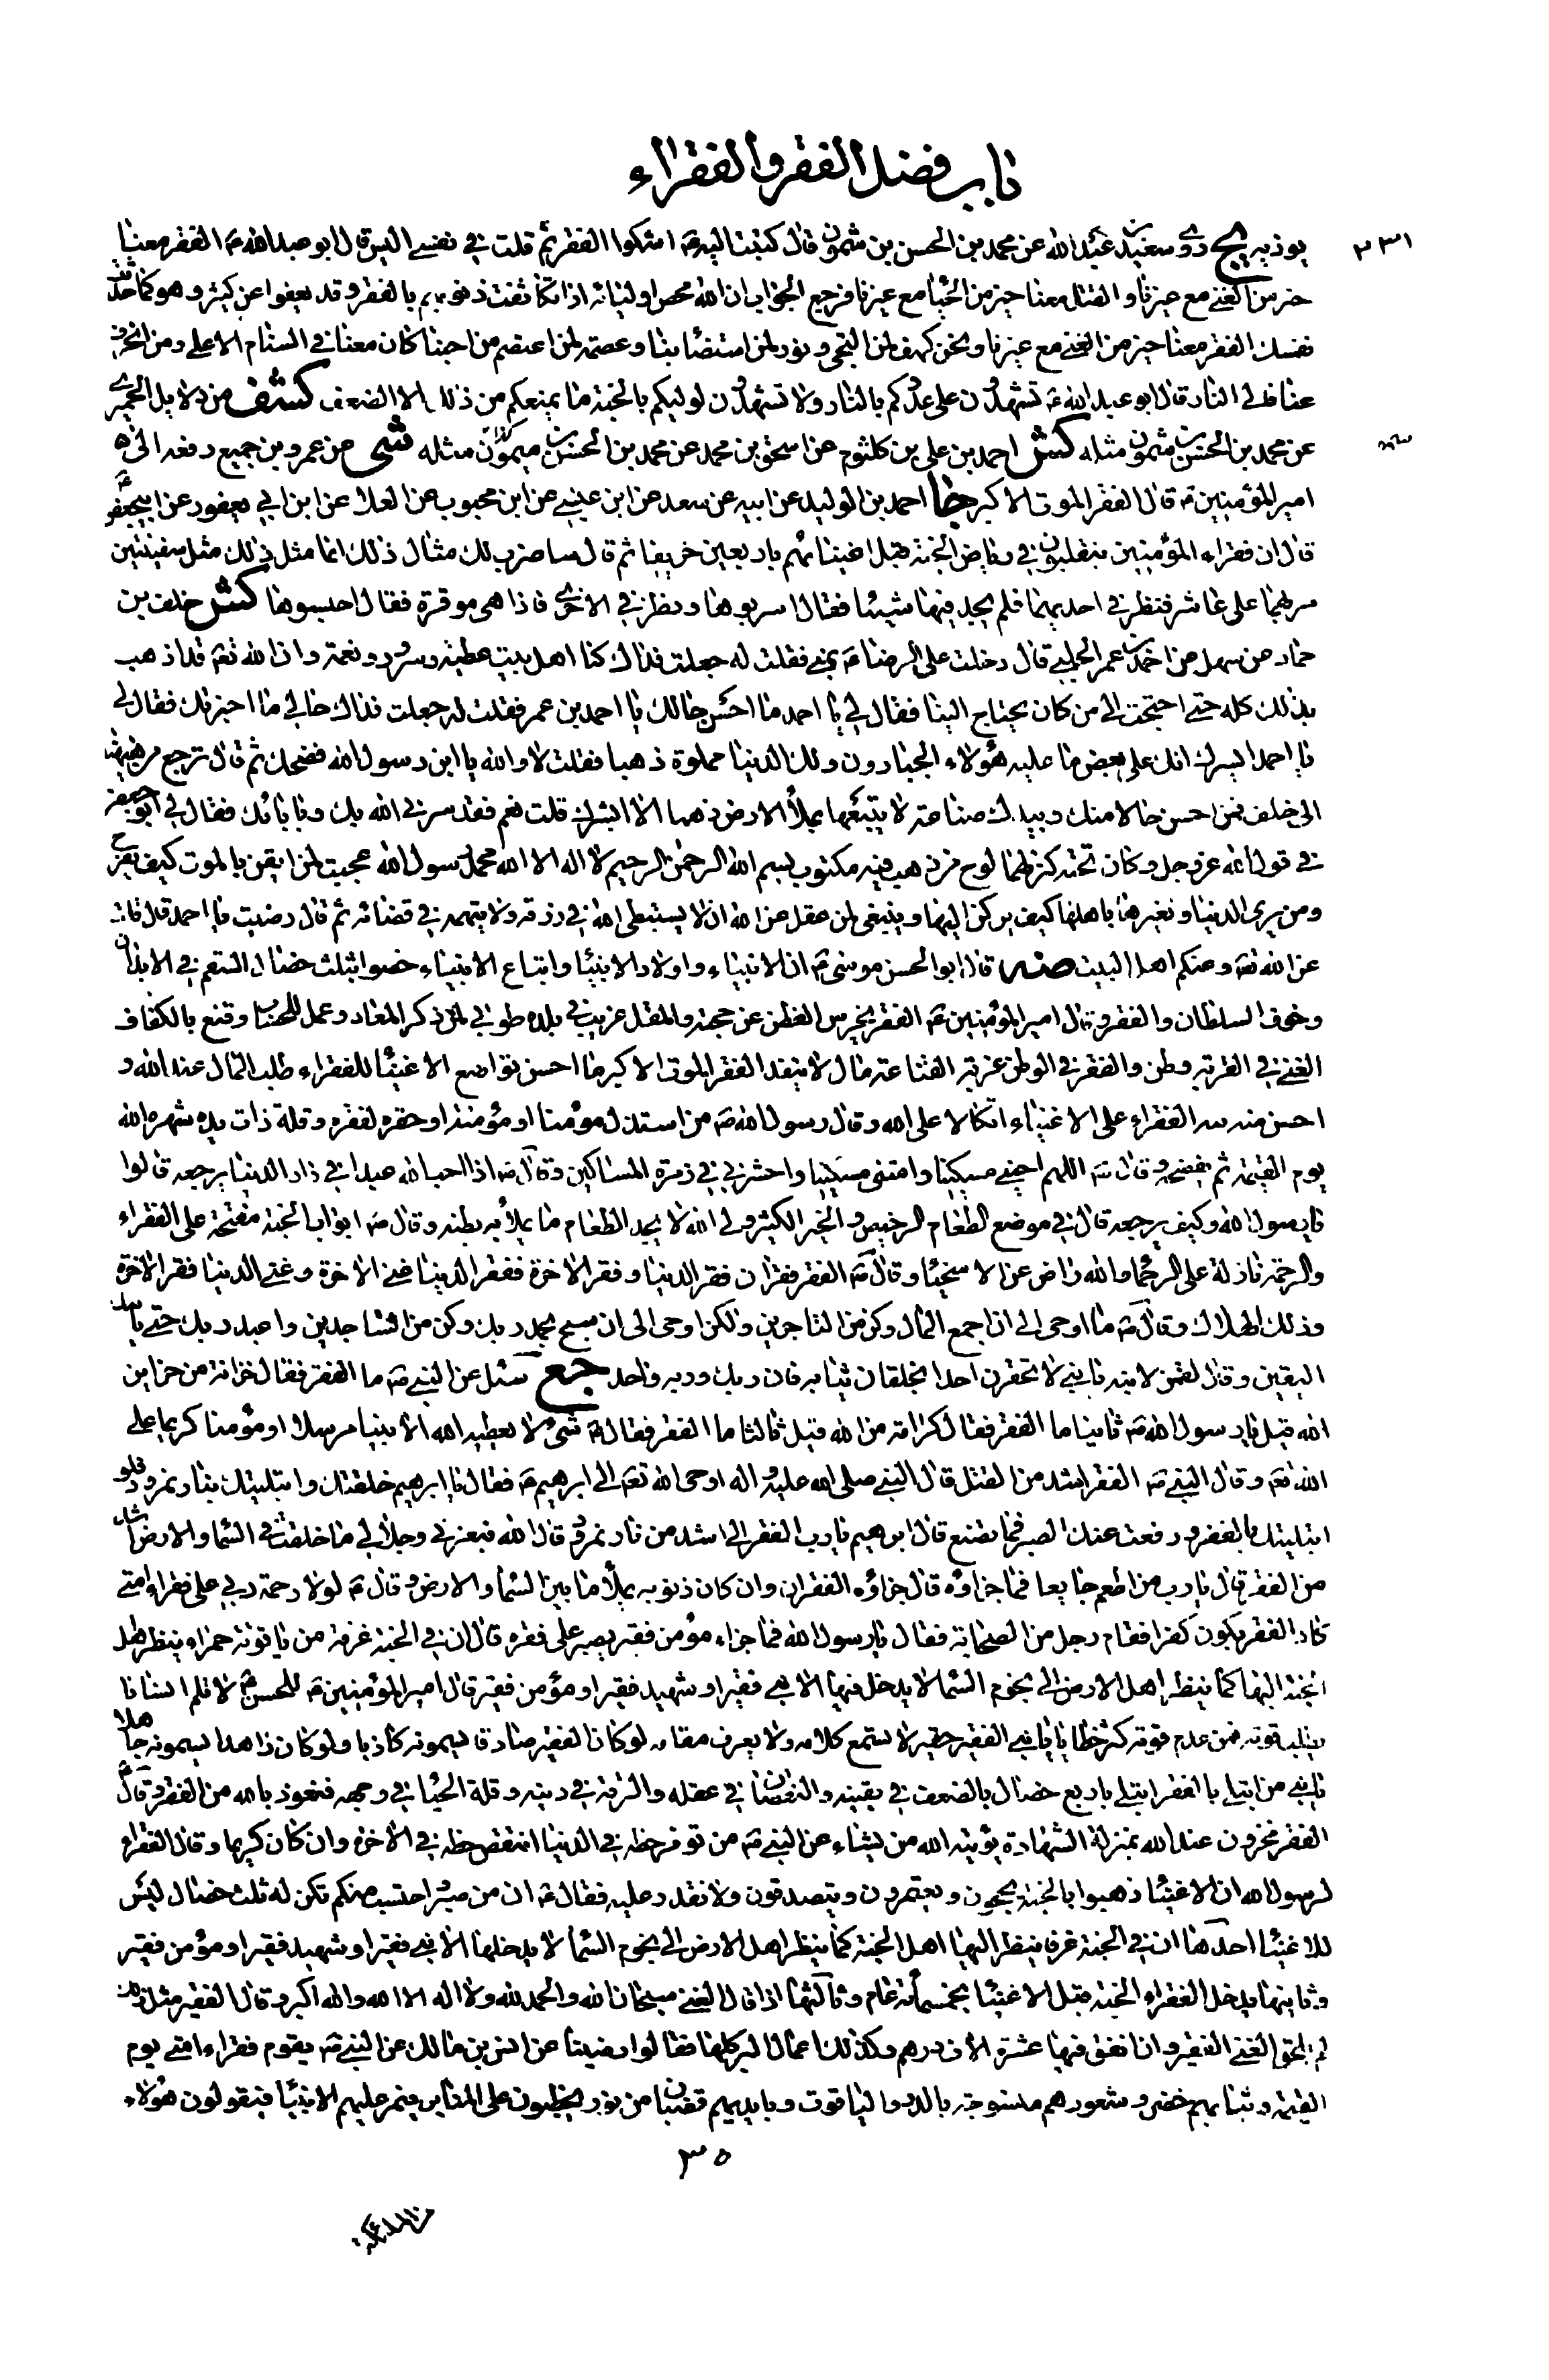 باب فضل الفقر والفقراء
٣٣١
يوذيه يج روى سعيد بن عبيد الله عن محمد بن الحسن بن شمون قال كتبت اليه ع اشكوا الفقر ثم قلت في نفسي اليس قال ابو عبد الله ع الفقر معنا
خير من الغنى مع غيرنا والقتل معنا خير من الحيا مع غيرنا فرجع الجواب ان الله محص اوليائه اذا تكاثفت ذنوبهم بالفقر وقد يعفوا عن كثير وهو كما حدثت
نفسك الفقر معنا خير من الغنى مع غيرنا ونحن كهف لمن التجى ونور لمن استضاء بنا وعصمة لمن اعتصم من احبنا كان معنا في السنام الاعلى ومن انحرف
عنا فالى النار قال ابو عبد الله ع تشهدون على عدوكم بالنار ولا تشهدون لوليكم بالجنة ما يمنعكم من ذلك الا الضعف كشف من دلايل الحميرى
عن محمد بن الحسن بن شمون مثله كش احمد بن على بن كلثوم عن اسحق بن محمد عن محمد بن الحسن بن ميمون مثله شى عن عمرو بن جميع رفعه الى
امير المؤمنين ع قال الفقر الموت الاكبر جا احمد بن الوليد عن ابيه عن سعد عن ابن عيسى عن ابن محبوب عن العلا عن ابن ابي يعفور عن ابيجعفر ع
قال ان فقراء المؤمنين يتقلبون في رياض الجنة قبل اغنيائهم باربعين خريفا ثم قال ساضرب لك مثال ذلك انما مثل ذلك مثل سفينتين
مر بهما على عاشر فنظر في احديهما فلم يجد فيها شيئا فقال اسربوها ونظر في الاخرى فاذا هى موقرة فقال احبسوها كش خلف بن
حماد عن سهل عن احمد بن عمر الحلبى قال دخلت على الرضا ع بمنى فقلت له جعلت فداك كنا اهل بيت عطية وسرور ونعمة وان الله تعه قد اذهب
بذلك كله حتى احتجت الى من كان يحتاج الينا فقال لي يا احمد ما احسن حالك يا احمد بن عمر فقلت له جعلت فداك حالى ما اخبرتك فقال لى
يا احمد ايسرك انك على بعض ما عليه هؤلاء الجبارون ولك الدنيا مملوة ذهبا فقلت لا والله يا ابن رسول الله فضحك ثم قال ترجع من هيهنا
الى خلف فمن احسن حالا منك وبيدك صناعة لا تبيعها بملأ الارض ذهبا الا ابشرك قلت نعم فقد سرنى الله بك وبابائك فقال لي ابو جعفر
فى قول الله عز وجل وكان تحته كنز لهما لوح من ذهب فيه مكتوب بسم الله الرحمن الرحيم لا اله الا الله محمد رسول الله عجبت لمن ايقن بالموت كيف يفرح
ومن يرى الدنيا وتغيرها باهلها كيف يركن اليها وينبغى لمن عقل عن الله ان لا يستبطى الله في رزقه ولا يتهمه في قضائه ثم قال رضيت يا احمد قال قلت
عن الله تعه وعنكم اهل البيت ضه قال ابو الحسن موسى ع ان الانبياء واولاد الانبياء واتباع الانبياء خصوا بثلث خصال السقم في الابدان
وخوف السلطان والفقر وقال امير المؤمنين ع الفقر يخرس الفطن عن حجته والمقل غريب في بلده طوبى لمن ذكر المعاد وعمل للحساب وقنع بالكفاف
الغنى في الغربة وطن والفقر في الوطن غربة القناعة مال لا ينفد الفقر الموت الاكبر ما احسن تواضع الاغنياء للفقراء طلبا لما عند الله و
احسن منه تيه الفقراء على الاغنياء اتكالا على الله وقال رسول الله ص من استذل مؤمنا او مؤمنة او حقره لفقره وقلة ذات يده شهره الله
يوم القيمة ثم يفضحه وقال ص اللهم احيني مسكينا وامتنى مسكينا واحشرني في زمرة المساكين وقال ص اذا احب الله عبدا في دار الدنيا يرجعه قالوا
يا رسول الله وكيف يرجعه قال في موضع الطعام الرخيص والخير الكثير ولى الله لا يجد الطعام ما يملأ به بطنه وقال ص ابواب الجنة مفتحة على الفقراء
والرحمة نازلة على الرحماء والله راض عن الاسخياء وقال ع الفقر فقران فقر الدنيا وفقر الاخرة ففقر الدنيا غنى الاخرة وغنى الدنيا فقر الاخرة
وذلك الهلاك وقال ص ما اوحى الى ان اجمع المال وكن من التاجرين ولكن اوحى الى ان سبح بحمد ربك وكن من الساجدين واعبد ربك حتى ياتيك
اليقين وقال لقمن لابنه يا بني لا تحقرن احدا بخلقان ثيابه فان ربك وربه واحد جع سئل عن النبي ص ما الفقر فقال خزانة من خزاين
الله قيل يا رسول الله ص ثانيا ما الفقر فقال كرامة من الله قيل ثالثا ما الفقر فقال ص شىء لا يعطيه الله الا نبيا مرسلا او مؤمنا كريما على
الله تعه وقال النبي ص الفقر اشد من القتل قال النبي صلى الله عليه واله اوحى الله تعه الى ابرهيم ع فقال يا ابرهيم خلقتك وابتليتك بنار نمرود فلو
ابتليتك بالفقر ورفعت عنك الصبر فما تصنع قال ابرهيم يا رب الفقر الى اشد من نار نمرود قال الله فبعزتى وجلالي ما خلقت في السماء والارض اشد
من الفقر قال يا رب من اطعم جايعا فما جزاؤه قال جزاؤه الغفران وان كان ذنوبه يملأ ما بين السماء والارض وقال ع لولا رحمة ربي على فقراء امتى
كاد الفقر يكون كفرا فقام رجل من الصحابة فقال يا رسول الله فما جزاء مؤمن فقير يصبر على فقره قال ان في الجنة غرفة من ياقوتة حمراء ينظر اهل
الجنة اليها كما ينظر اهل الارض الى نجوم السماء لا يدخل فيها الا نبى فقير او شهيد فقير او مؤمن فقير قال امير المؤمنين ع للحسن ع لا تلم انسانا
يطلب قوته فمن عدم قوته كثر خطاياه يا بني الفقير حقير لا يسمع كلامه ولا يعرف مقامه لو كان الفقير صادقا يسمونه كاذبا ولو كان زاهدا يسمونه جاهلا
يا بني من ابتلى بالفقر ابتلى باربع خصال بالضعف في يقينه والنقصان في عقله والرقة في دينه وقلة الحياء في وجهه فنعوذ بالله من الفقر وقال ع
الفقر مخزون عند الله بمنزلة الشهادة يؤتيه الله من يشاء عن النبي ص من توفر حظه في الدنيا انتقص حظه في الاخرة وان كان كريما وقال الفقراء
لرسول الله ان الاغنياء ذهبوا بالجنة يحجون ويعتمرون ويتصدقون ولا نقدر عليه فقال ع ان من صبر واحتسب منكم تكن له ثلث خصال ليس
للاغنياء احدها ان في الجنة غرفا ينظر اليها اهل الجنة كما ينظر اهل الارض الى نجوم السماء لا يدخلها الا نبى فقير او شهيد فقير او مؤمن فقير
وثانيها يدخل الفقراء الجنة قبل الاغنياء بخمسمائة عام وثالثها اذا قال الغنى سبحان الله والحمد لله ولا اله الا الله والله اكبر وقال الفقير مثل ذلك
لم يلحق الغنى الفقير وان انفق فيها عشرة الاف درهم وكذلك اعمال البر كلها فقالوا رضينا عن انس بن مالك عن النبي ص يقوم فقراء امتى يوم
القيمة وثيابهم خضر وشعورهم منسوجة بالدر والياقوت وبايديهم قضبان من نور يخطبون على المنابر فيمر عليهم الانبياء فيقولون هؤلاء
٣٥